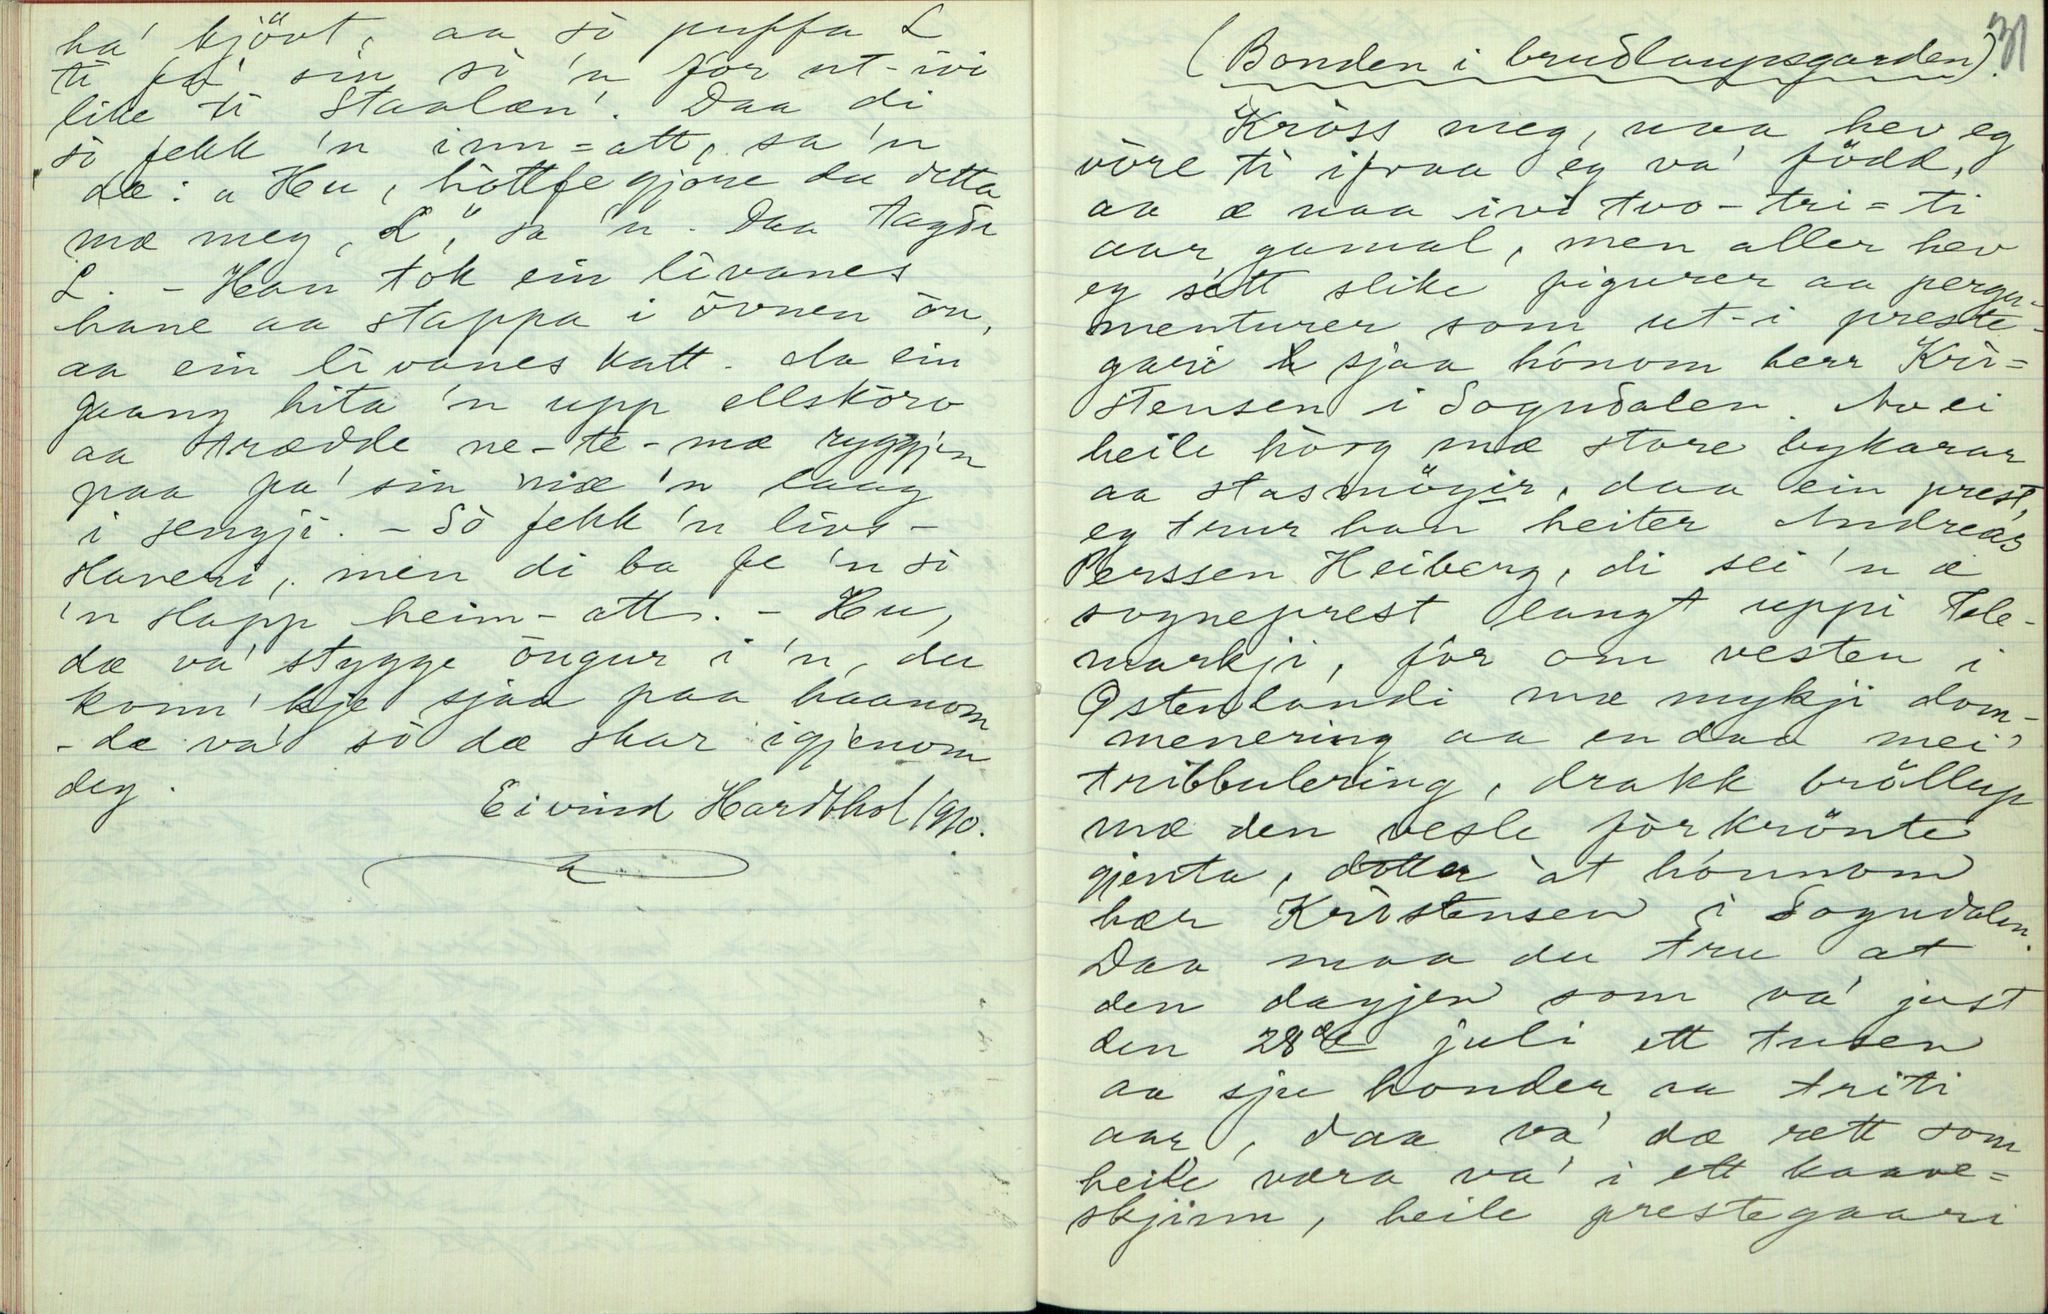 ha' kjövt, aa so puffa L
ti fa' sin so 'n for ut-ivi
like ti Staalen'. Daa di
so fekk 'n inn=att, sa 'n
dæ: "Hu, hottfe gjore du detta
mæ meg, L", sa 'n. Daa tagde
L. - Han tok ein livanes
hane aa stappa i övnen ön,
aa ein livanes katt. Aa ein
gaang hita 'n upp ellskoro
aa trædde ne-te-mæ ryggjen
paa fa' sin mæ 'n laag
i sengji. - So fekk 'n livs-
slaveri, men di ba fe 'n so
'n slapp heim-att. - Hu,
dæ va' stygge öngur i 'n, du
konn' kje sjaa paa haanom
- dæ va' so dæ skar igjenom
deg.
Eivind Hardbhol 1910.
31
(Bonden i brudlaupsgarden).
Kross meg, naa hev eg
vöre ti ifraa eg va' född,
aa æ naa ivi tvo-tri=ti
aar gamal, men aller hev
eg sett slike figurer aa perga-
menturer som ut-i preste-
gari sjaa honom herr Kri=
stensen i Sogndalen. Av ei
heile horg mæ store bykarar
aa stasmöyir, daa ein prest,
eg trur han heiter Andreas
Perssen Heiberg, di sei 'n æ
sogneprest langt uppi Tele-
markji, for om vesten i
Østenlandi mæ mykji dom-
menering aa endaa mei'
tribbulering, drakk bröllup
mæ den vesle forkrönte
gjenta, dotter åt honnom
hær Kristensen i Sogndalen.
Daa maa du tru at
den dagjen som va' just
den 28de juli ett tusen
aa sju honder aa triti
aar, daa va' dæ rett som
heile væra va' i ett kaave=
skjinn, heile prestegaari